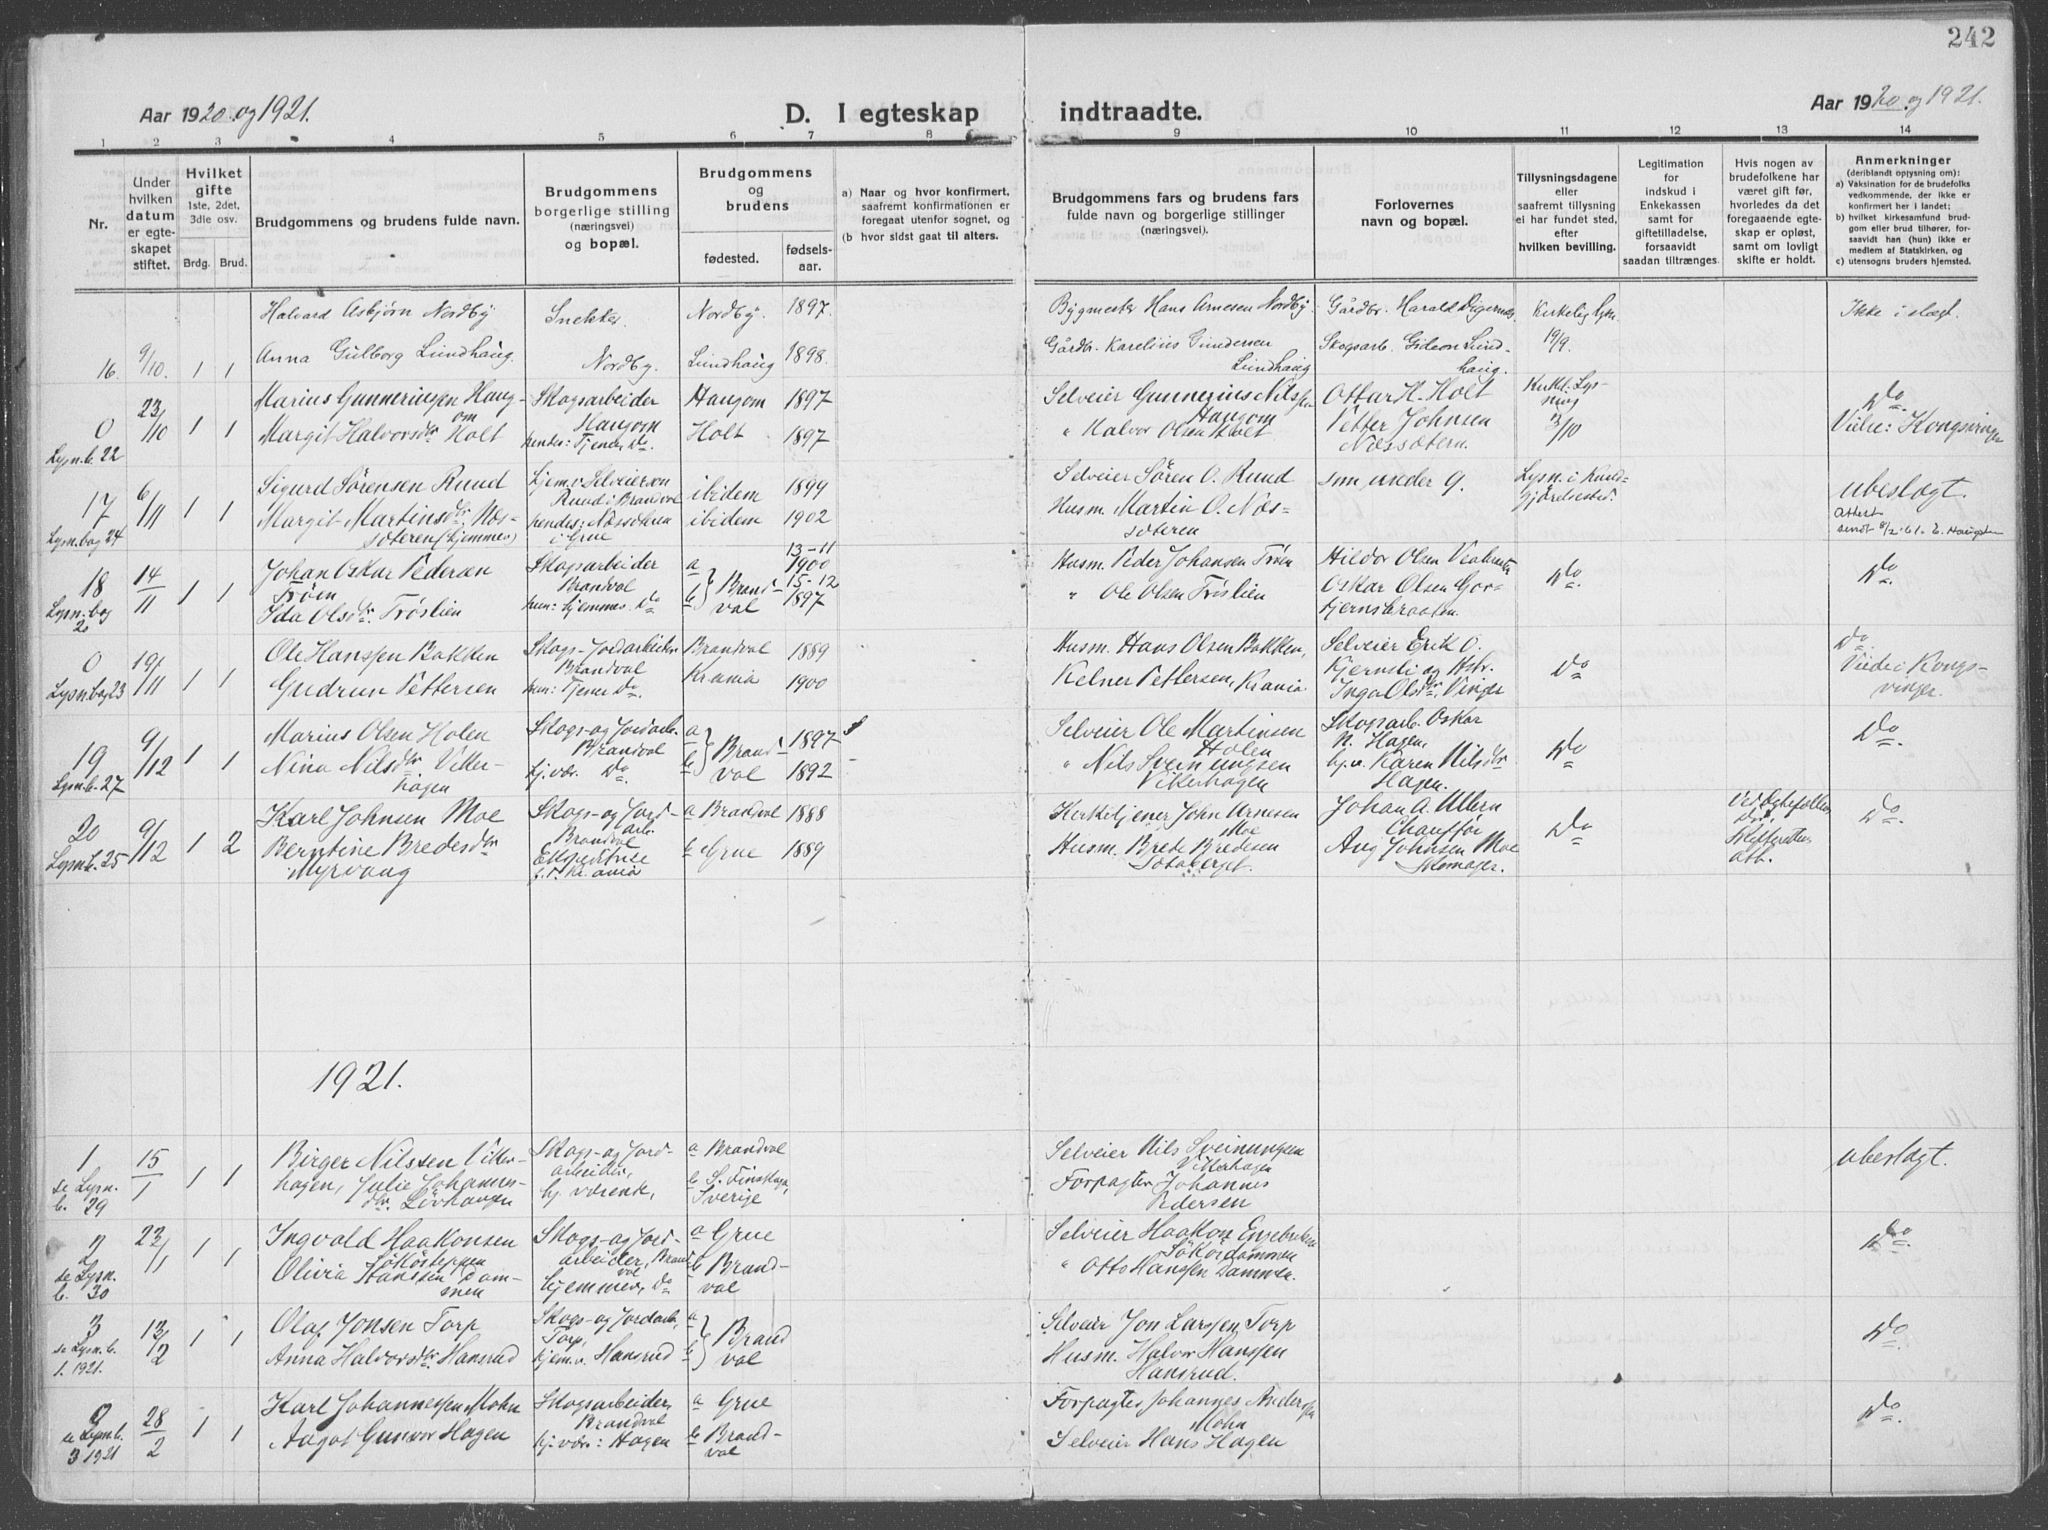 242
Aar 1920 og 1921.
D. I egteskap indtraadte.
Aar 1920 og 1921.
1 2 3 4 5 6 7 8 9 10 11 12 13 14
Nr.
Under hvilken datum er egteskapet stiftet.
Hvilket gifte 1ste, 2det, 3die osv.
Brdg. Brud.
Brudgommens og brudens fulde navn.
Brudgommens borgerlige stilling (næringsvei) og bopæl.
Brudgommens og brudens
fødested. fødselsaar.
a) Naar og hvor konfirmert, saafremt konfirmationen er foregaat utenfor sognet, og
(b hvor sidst gaat til alters.
Brudgommens fars og brudens fars fulde navn og borgerlige stillinger (næringsvei).
Forlovernes navn og bopæl.
Tillysningsdagene eller saafremt tillysning ei har fundet sted, efter hvilken bevilling.
Legitimation for indskud i Enkekassen samt for giftetilladelse, forsaavidt saadan tiltrænges.
Hvis nogen av brudefolkene har været gift før, hvorledes da det foregaaende egteskap er opløst, samt om lovligt skifte er holdt.
Anmerkninger (deriblandt oplysning om):
a) Vaksination for de brudefolks vedkommende, der ikke er konfirmert her i landet;
b) hvilket kirkesamfund brudgom eller brud tilhører, forsaavidt han (hun) ikke er medlem av Statskirken, og
c) utensogns bruders hjemsted.
Halvard Asbjørn Nordby Snekker Nordby. 1897. Bygmester Hans Arnesen Nordby Gårdbr. Harald Digernes Kirkelig lysn. Ikke i slegt.
16. 9/10. 1 1 Anna Gulborg Lundhaug. Nordby. Lundhaug 1898. Gårdbr. Karelius Gundersen Lundhaug Skogsarb. Gideon Lundhaug. 19/9.
0 23/10 1 1 Marius Gunneriussen Haugom Skogsarbeider Haugom Haugom 1897 Selveier Gunnerius Nilssen Haugom Ottar H. Holt Kirkl. Lysning Do
Lysn.b. 22 Margit Halvorsdtr Holt hendes: Tjener, Do Holt 1897 " Halvor Olsen Holt Petter Johnsen Næssætern. /10 Viet i Kongsvinger
17 6/11 1 1 Sigurd Sørensen Ruud Hjem.v. Selveiersøn Ruud i Brandval ibidem 1899 Selveier Søren O. Ruud som under 9. Lysn. i ubeslegt.
Lysn.bog 24 Margit Martinsdtr Næssæteren (hjemmev) hendes: Næssæteren i Grue ibidem 1902 Husm. Martin O. Næssæteren Attest sendt 8/2-61.
18 14/11 1 1 Johan Oskar Pedersen Trøen Skogsarbeider Brandval a 13-11 1900 Husm. Peder Johansen Trøen Hildor Olsen Do Do.
Lysn.bog 20 Ida Olsdtr. Trøslien hun: hjemmev. Do b Brandval 15-12 1897 " Ole Olsen Trøslien Oskar Olsen
0 19/11 1 1 Ole Hanssen Bakken Skogs- Jordarbeider Brandval Brandval 1889 Husm. Hans Olsen Bakken, Selveier Erik O. Kjernsli og Do Do.
Lysn.bog 23 Gudrun Pettersen hun: Tjener Do. Krania 1900 Kelner Pettersen, Krania Inga Olsdtr. Vinger Viede i Kongsvinger.
19 9/12 1 1 Marius Olsen Holen Skogs- og Jordarb. Brandval a 1897 Selveier Ole Martinsen Holen Skogsarb. Oskar N. Hagen, Do Do.
Lysn.b. 27 Nina Nilsdtr Vikerhagen hj.vær. Do. b Brandval 1892 " Nils Sveinungsen Vikerhagen hj.v. Karen Nilsdtr Hagen.
20 9/12 1 2 Karl Johnsen Moe Skogs- og Jordarb. Brandval a Brandval 1888 Kirketjener John Arnesen Moe Johan A. Ullern Chauffør Do Ved Do.
Lysn.b. 25 Berntine Bredesdtr Myrvang Krania b Grue 1889 Husm. Brede Bredesen Aug Johnsen Moe Skomager.
1921.
1 15/1 1 1 Birger Nilssen Vikerhagen, Skogs- og Jordarbeider, a Brandval Selveier Nils Sveinungsen Vikerhagen ubeslegt.
se Lysn.b. 29 Julie Johannesdtr. Løvhaugen hj. værende, b S. Finskoga, Sverige Forpagter Johannes Pedersen
2 23/1 1 1 Ingvald Haakonsen Skogs- og Jordarbeider, Brandval a Grue Selveier Haakon Engebriksen Do.
se Lysn.b. 30 Olivia Hanssen Dammen hjemmev, Do b Brandval " Otto Hanssen Dammen.
3 13/2 1 1 Olaf Jonsen Torp Skogs- og Jordarb, Torp, a Selveier Jon Larssen Torp Do.
se Lysn.b. 1. 1921. Anna Halvorsdtr Hansrud hjem.v. Hansrud b Brandval Husm. Halvor Hanssen Hansrud.
28/2 1 1 Karl Johannessen Mohn Skogsarbeider, Brandval a Grue Forpagter Johannes Anderssen Mohn Do.
se Lysn.b. 3 1921 Aagot Gunvor Hagen hj.vær: Hagen b Brandval Selveier Hans Hagen